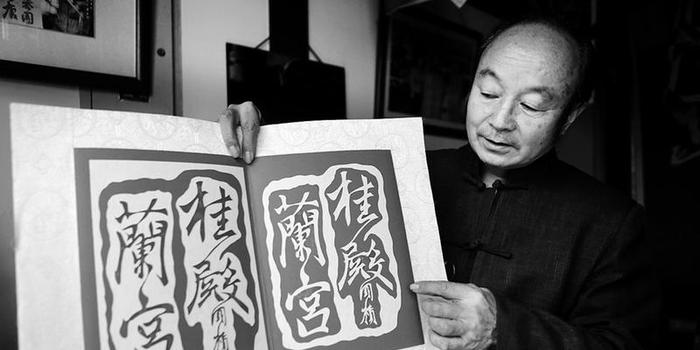 桂殿
蘭宮
桂殿
蘭宮